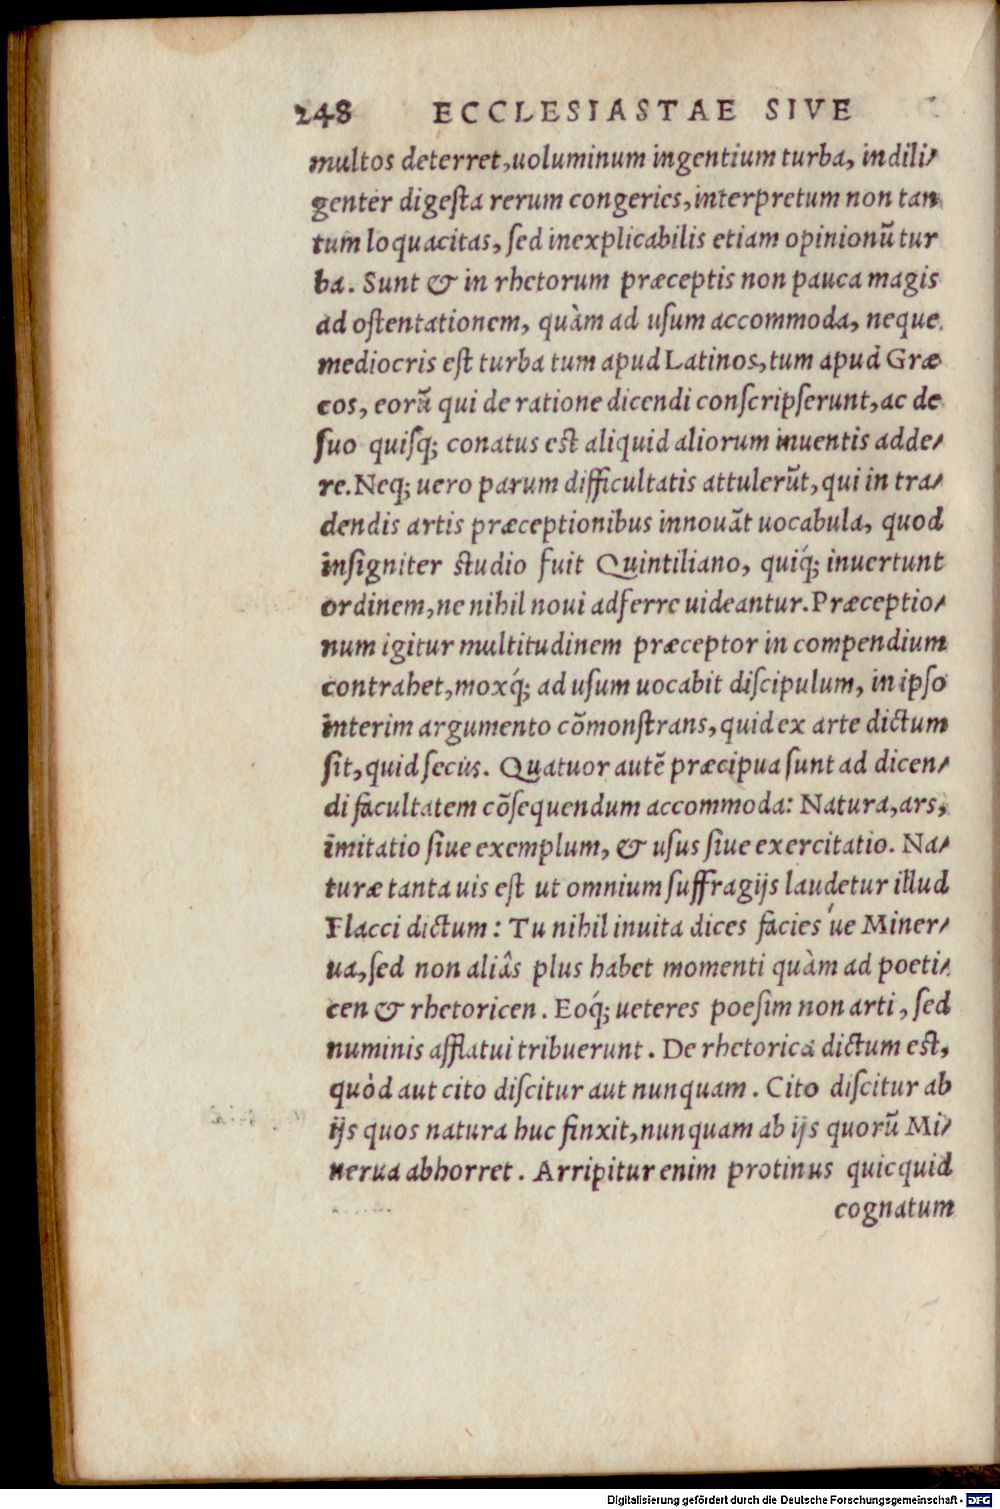 248 ECCLESIASTAE SIVE
multos deterret, uoluminum ingentium turba, indili-
genter digesta rerum congeries, interpretum non tan
tum loquacitas, sed inexplicabilis etiam opinionũ tur
ba. Sunt & in rhetorum præceptis non pauca magis
ad ostentationem, quàm ad usum accommoda, neque
mediocris est turba tum apud Latinos, tum apud Græ
cos, eorũ qui de ratione dicendi conscripserunt, ac de
suo quisq; conatus est aliquid aliorum inuentis adde-
re. Neq; uero parum difficultatis attulerũt, qui in tra-
dendis artis præceptionibus innouãt uocabula, quod
insigniter studio fuit Quintiliano, quiq́; inuertunt
ordinem, ne nihil noui adferre uideantur. Præceptio-
num igitur multitudinem præceptor in compendium
contrahet, moxq́; ad usum uocabit discipulum, in ipso
interim argumento cõmonstrans, quid ex arte dictum
sit, quid secùs. Quatuor autẽ præcipua sunt ad dicen-
di facultatem cõsequendum accommoda: Natura, ars,
imitatio siue exemplum, & usus siue exercitatio. Na-
turæ tanta uis est ut omnium suffragijs laudetur illud
Flacci dictum: Tu nihil inuita dices facies ́ue Miner-
ua, sed non aliâs plus habet momenti quàm ad poeti-
cen & rhetoricen. Eoq́; ueteres poesim non arti, sed
numinis afflatui tribuerunt. De rhetorica dictum est,
quòd aut cito discitur aut nunquam. Cito discitur ab
ijs quos natura huc finxit, nunquam ab ijs quorũ Mi-
nerua abhorret. Arripitur enim protinus quicquid
cognatum
Digitalisierung gefördert durch die Deutsche Forschungsgemeinschaft - DFG